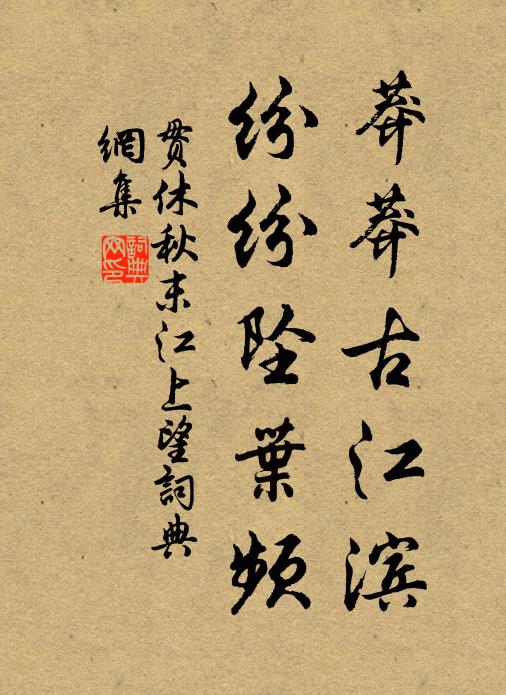 莽莽古江滨
纷纷坠葉频
贯休秋末江上望詞典
網集
詞典
网印